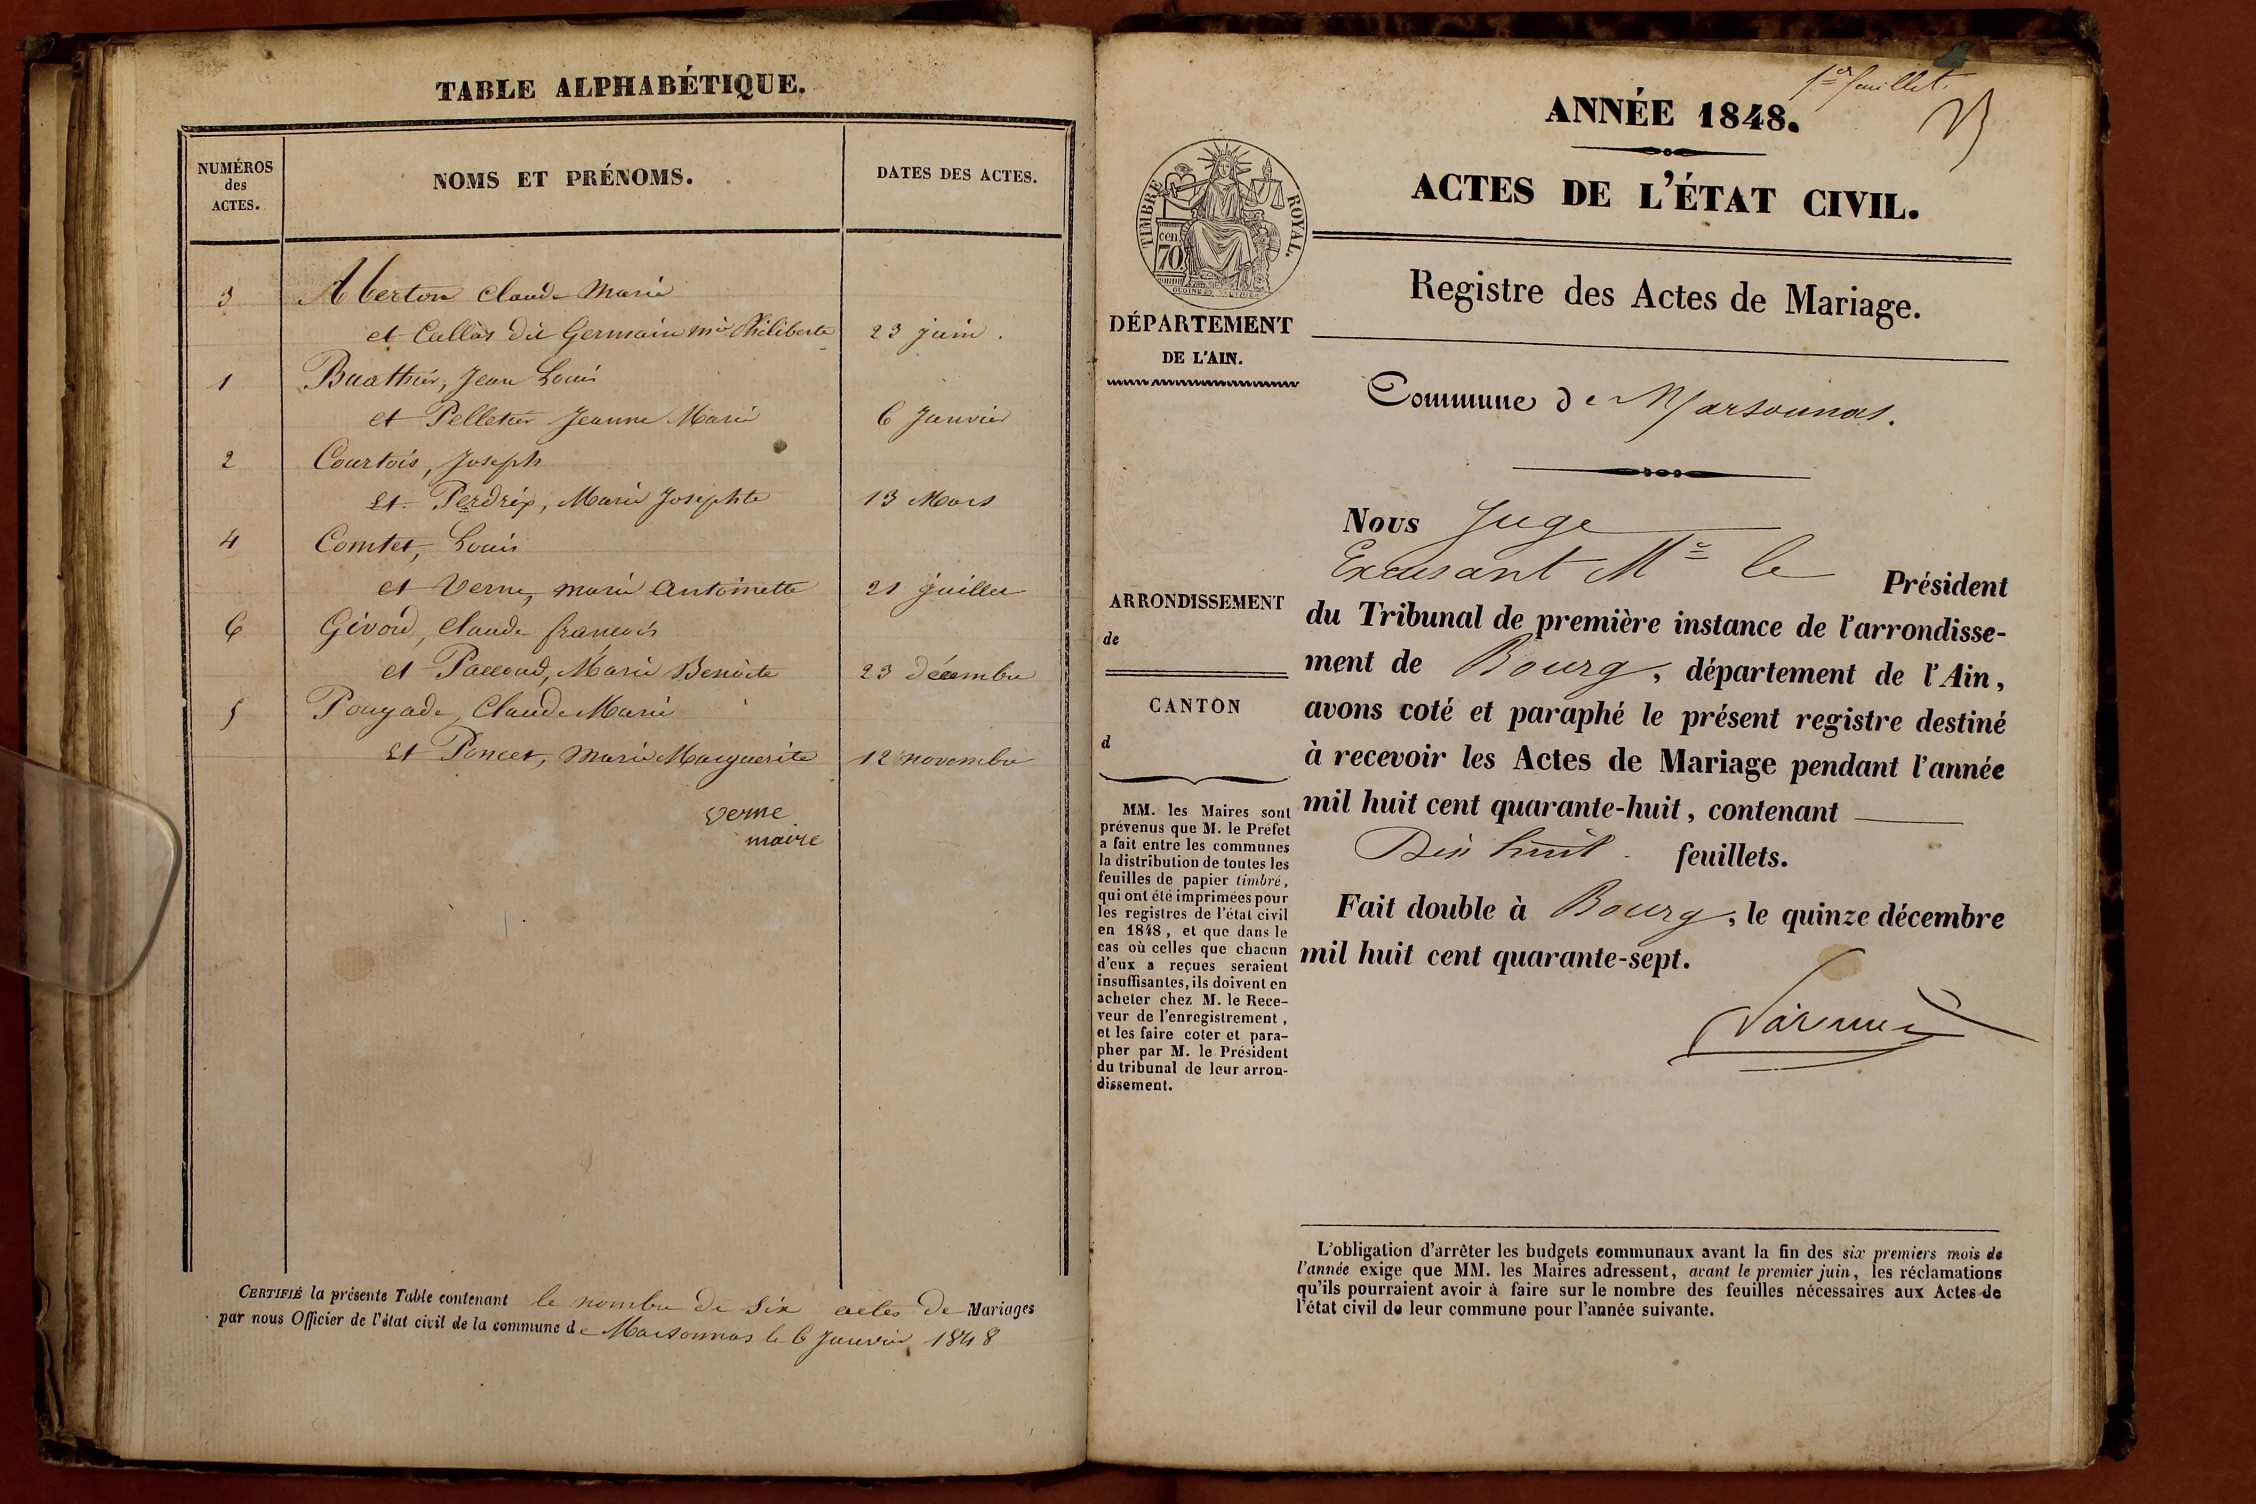 TABLE ALPHABÉTIQUE.
NUMÉROS
des
ACTES.
NOMS ET PRÉNOMS.
DATES DES ACTES.
3 Alberton Claude Marie
et Callas dit Germain Mie Philiberte 23 juin.
1 Buathier, Jean Louis
et Pelletier Jeanne Marie 6 Janvier
2 Courtois, Joseph
et Perdrix, Marie Josephte 13 Mars
4 Comtet, Louis
et Verne, marie Antoinette 21 juillet
6 Givord, Claude françois
et Paccoud, Marie Benoite 23 décembre
5 Pougade, Claude Marie
et Poncet, Marie Marguerite 12 novembre
verne
maire
CERTIFIÉ la présente Table contenant le nombre de six actes de Mariages
par nous Officier de l'état civil de la commune de Marsonnas le 6 Janvier 1848
1er feuillet.
ANNÉE 1848.
ACTES DE L'ÉTAT CIVIL.
TIMBRE ROYAL.
cen
70
Registre des Actes de Mariage.
DÉPARTEMENT
DE L'AIN.
Commune de Marsonnas.
ARRONDISSEMENT
de
CANTON
d
MM. les Maires sont
prévenus que M. le Préfet
a fait entre les communes
la distribution de toutes les
feuilles de papier timbré,
qui ont été imprimées pour
les registres de l'état civil
en 1848, et que dans le
cas où celles que chacun
d'eux a reçues seraient
insuffisantes, ils doivent en
acheter chez M. le Rece-
veur de l'enregistrement,
et les faire coter et para-
pher par M. le Président
du tribunal de leur arron-
dissement.
Nous Juge
Excusant Mr le Président
du Tribunal de première instance de l'arrondisse-
ment de Bourg, département de l'Ain,
avons coté et paraphé le présent registre destiné
à recevoir les Actes de Mariage pendant l'année
mil huit cent quarante-huit, contenant
Dix huit feuillets.
Fait double à Bourg, le quinze décembre
mil huit cent quarante-sept.
L'obligation d'arrêter les budgets communaux avant la fin des six premiers mois de
l'année exige que MM. les Maires adressent, avant le premier juin, les réclamations
qu'ils pourraient avoir à faire sur le nombre des feuilles nécessaires aux Actes de
l'état civil de leur commune pour l'année suivante.